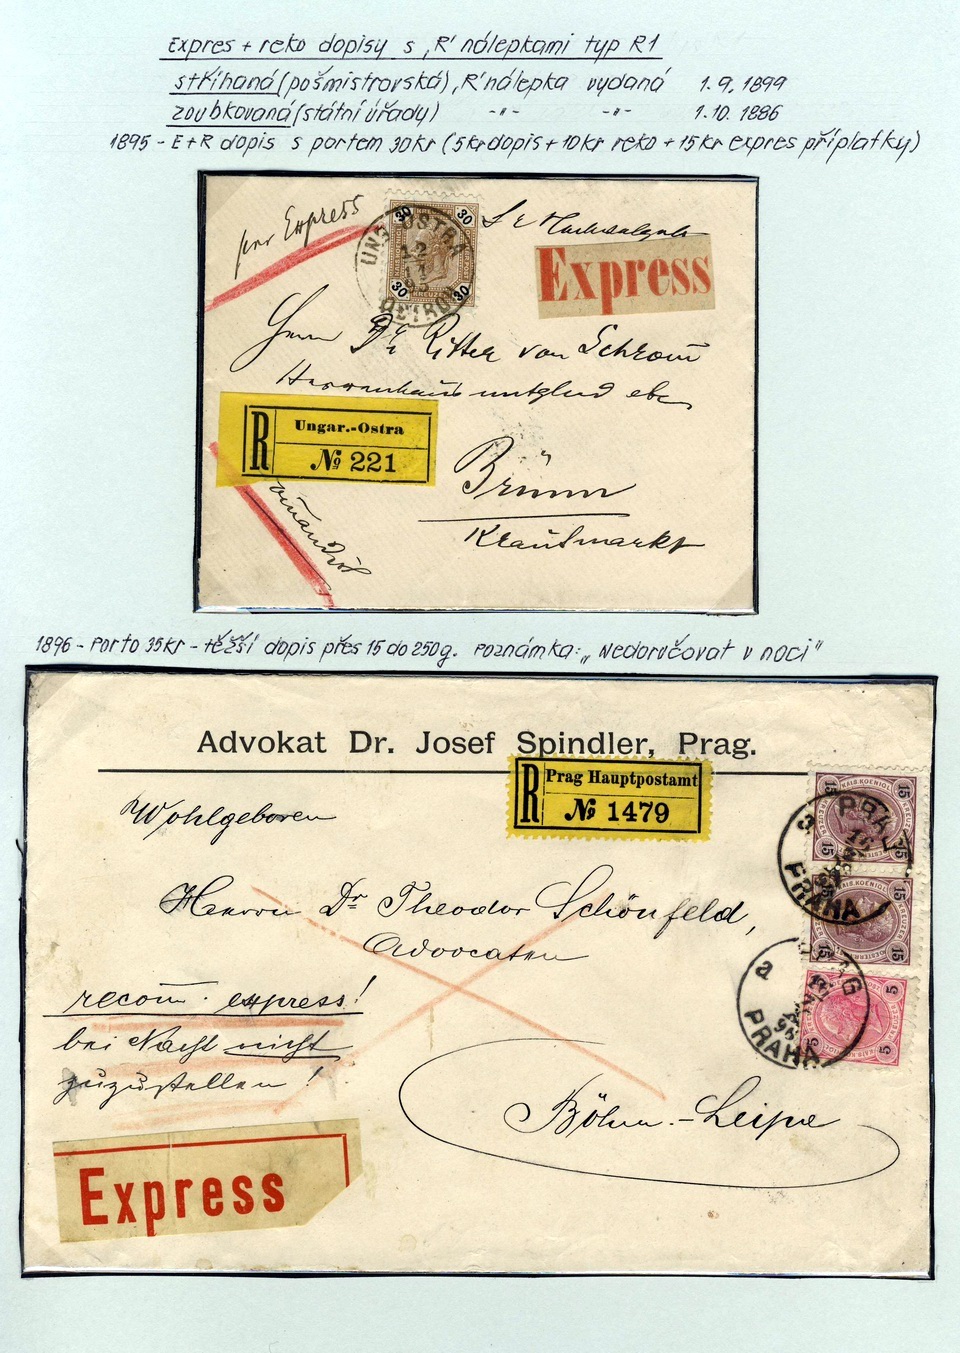 Expres + reko dopisy s „R" nálepkami typ R1
stříhaná (pošmistrovská) „R" nálepka vydaná 1.9.1899
zoubkovaná (státní úřady) -"- -"- 1.10.1886
1895 - E+R dopis s portem 30kr (5kr dopis + 10kr reko + 15kr expres příplatky)
per Express
30 30
UNG. OSTRA
30 30
KREUZER
OSTROH
Express
Herrn Dr Ritter von Schrom
Herrenhausmitglied etc
R Ungar.-Ostra
№ 221
Brünn
Krautmarkt
1896 - Porto 35kr - těžší dopis přes 15 do 250g. Poznámka: „Nedoručovat v noci"
Advokat Dr. Josef Spindler, Prag.
R Prag Hauptpostamt
№ 1479
15 15
PRAG
PRAHA
a
15 15
15 15
5 5
a PRAG
96
PRAHA
Wohlgeboren
Herrn Dr Theodor Schönfeld,
Advocaten
recom. express!
bei Nacht nicht
zuzustellen!
Böhm.-Leipa
Express